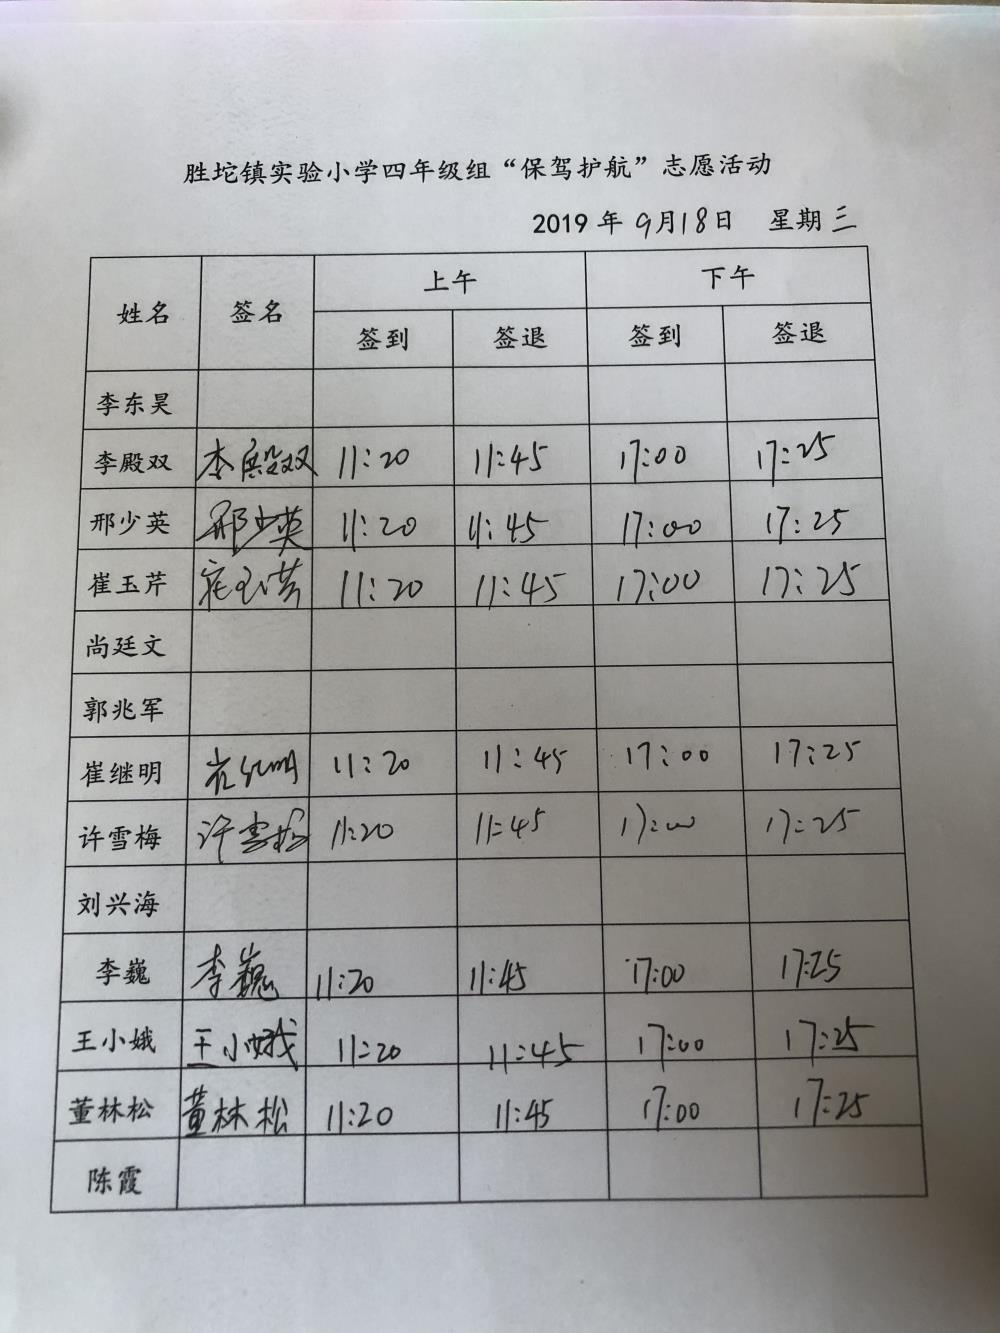 胜坨镇实验小学四年级组“保驾护航”志愿活动
2019 年 9月18日 星期三
姓名 签名 上午 下午
签到 签退 签到 签退
李东昊
李殿双 李殿双 11:20 11:45 17:00 17:25
邢少英 邢少英 11:20 11:45 17:00 17:25
崔玉芹 崔玉芹 11:20 11:45 17:00 17:25
尚廷文
郭兆军
崔继明 崔继明 11:20 11:45 17:00 17:25
许雪梅 许雪梅 11:20 11:45 17:00 17:25
刘兴海
李巍 李巍 11:20 11:45 17:00 17:25
王小娥 王小娥 11:20 11:45 17:00 17:25
董林松 董林松 11:20 11:45 17:00 17:25
陈霞